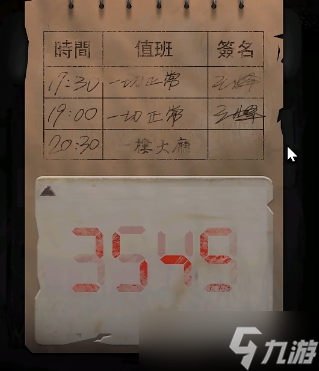 時間 值班 簽名
17:30 一切正常
19:00 一切正常
20:30 一樓大廳
3549
九游